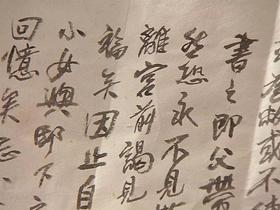 或不
書之即父
然恐永不見
離宮前謁見
福矣因止自
小女與即
回憶矣忘